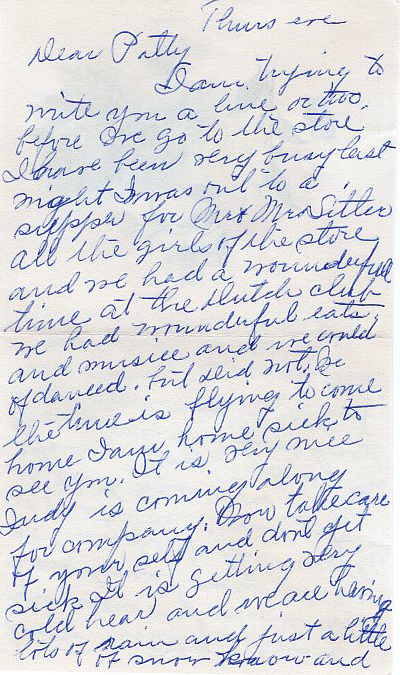 Thurs eve
Dear Patty
I am trying to
write you a line or two,
before I've go to the store
I have been very busy last
night I was out to a
supper for Mr & Mrs Sitter
all the girls of the store
and we had a wounderfull
time at the Dutch club
we had wounderful eats,
and musice and we could
of danced. but did not, 
the time is flying to come
home I am home sick to
see you. It is very nice
Judy is coming along
for company. Now take care
of your self and don't get
sick It is getting very
cold hear and we are having
lots of rain and just a little
of snow and